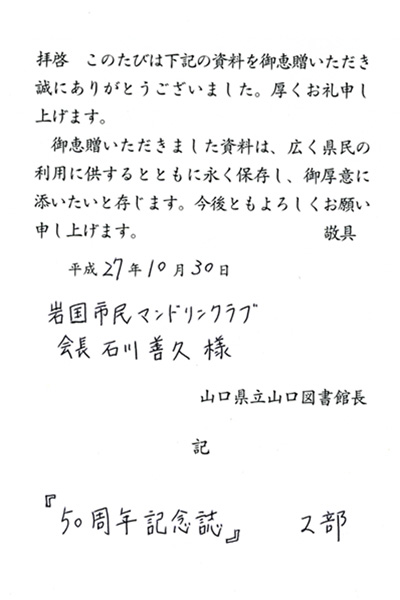 拝啓　このたびは下記の資料を御恵贈いただき
誠にありがとうございました。厚くお礼申し
上げます。
　御恵贈いただきました資料は、広く県民の
利用に供するとともに永く保存し、御厚意に
添いたいと存じます。今後ともよろしくお願い
申し上げます。　　　　　　　　　　敬具
平成27年10月30日
岩国市民マンドリンクラブ
会長 石川善久 様
山口県立山口図書館長
記
『50周年記念誌』　2部